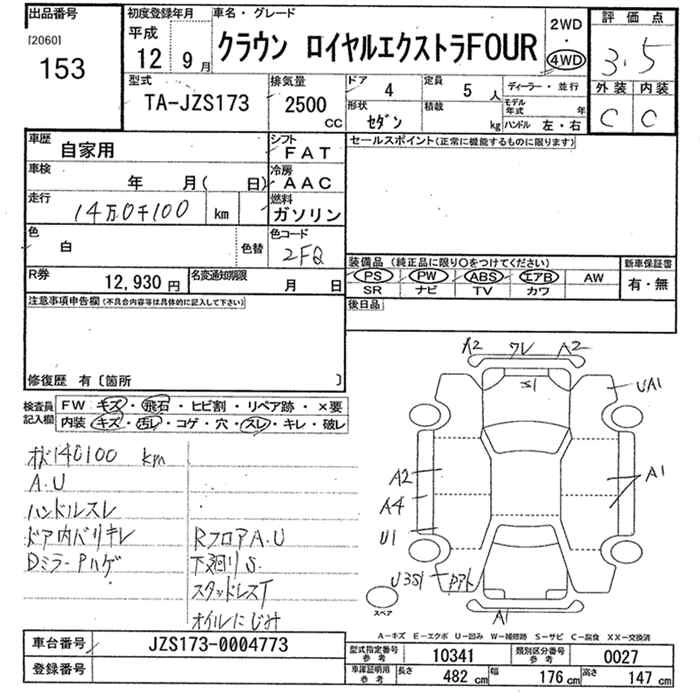 出品番号
[2060]
153
初度登録年月
平成
12 9月
車名・グレード
クラウン ロイヤルエクストラFOUR
2WD
・
4WD
評価点
3.5
外装 内装
C C
型式
TA-JZS173
排気量
2500
CC
ドア 4
定員 5人
ディーラー・並行
形状 セダン
積載 kg
モデル年式 年
ハンドル 左・右
車歴 自家用
シフト FAT
セールスポイント(正常に機能するものに限ります)
車検 年 月( 日)
冷房 AAC
走行 14万0千100 km
燃料 ガソリン
色 白
色替
色コード
2FQ
装備品(純正品に限り〇をつけてください)
新車保証書
PS PW ABS エアB AW
有・無
SR ナビ TV カワ
R券 12,930円
名変通知期限 月 日
後日品
注意事項申告欄(不具合内容等は具体的に記入して下さい)
修復歴 有〔箇所 〕
検査員記入欄
FW キズ・飛石・ヒビ割・リペア跡・×要
内装 キズ・汚レ・コゲ・穴・スレ・キレ・破レ
140100 km
A.U
ハンドルスレ
ドア内バリキレ
Dミラー Pハゲ
RフロアA.U
下廻りS
スタッドレスT
オイルにじみ
A2 ワレ A2
S1
UA1
A2
A4
U1
A1
U3S1
スペア
A1
A-キズ E-エクボ U-凹み W-補修跡 S-サビ C-腐食 XX-交換済
車台番号 JZS173-0004773
型式指定番号 参考 10341
類別区分番号 参考 0027
登録番号
車庫証明用 参考
長さ 482 cm
幅 176 cm
高さ 147 cm